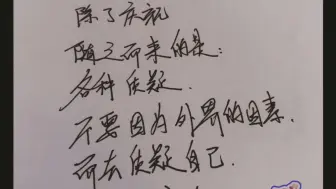 除了庆祝
随之而来的是：
各种质疑.
不要因为外界的因素.
而去质疑自己.